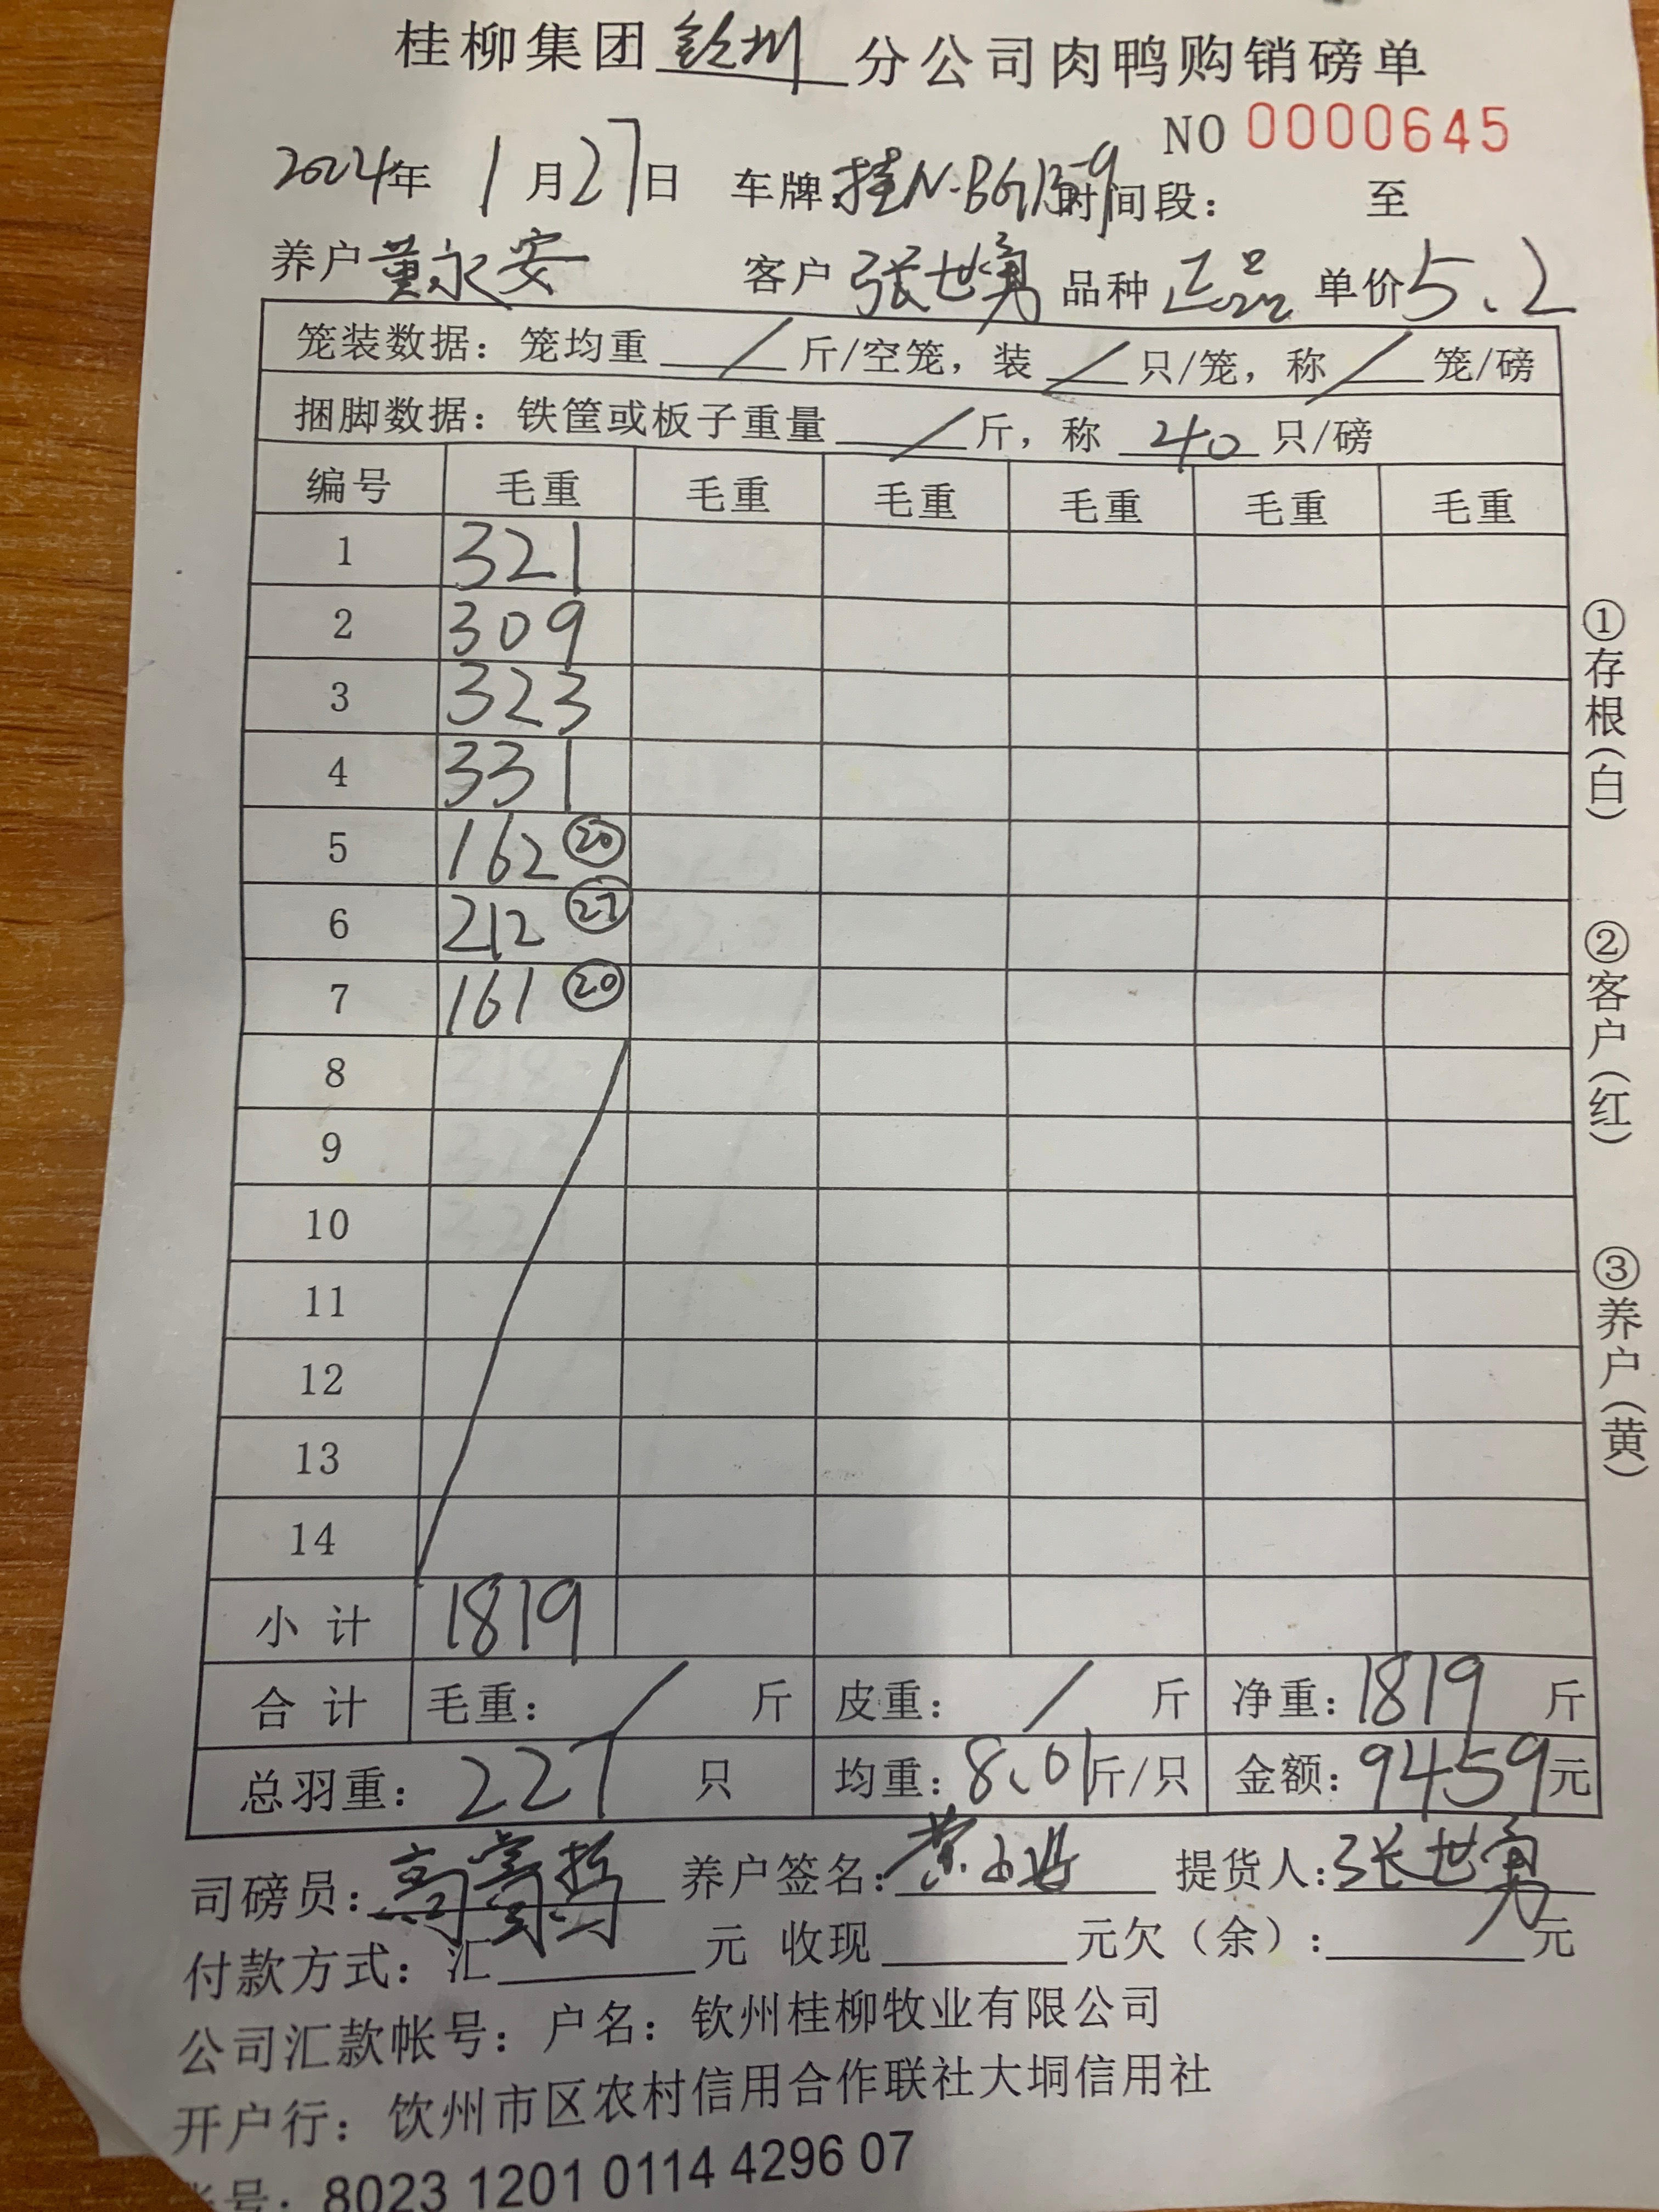 桂柳集团钦州分公司肉鸭购销磅单
NO 0000645
2024年 1月27日 车牌:桂N·BG139 时间段: 至
养户 黄永安 客户 张世勇 品种 正品 单价 5.2
笼装数据: 笼均重 / 斤/空笼, 装 / 只/笼, 称 / 笼/磅
捆脚数据: 铁筐或板子重量 / 斤, 称 40 只/磅
编号 毛重 毛重 毛重 毛重 毛重 毛重
1 321
2 309
3 323
4 331
5 162 ⑳
6 212 ㉗
7 161 ⑳
8
9
10
11
12
13
14
小计 1819
合计 毛重: / 斤 皮重: / 斤 净重: 1819 斤
总羽重: 227 只 均重: 8.01 斤/只 金额: 9459元
司磅员: 养户签名: 提货人: 张世勇
付款方式: 汇 元 收现 元欠(余): 元
公司汇款帐号: 户名: 钦州桂柳牧业有限公司
开户行: 钦州市区农村信用合作联社大垌信用社
帐号: 8023 1201 0114 4296 07
①存根(白)
②客户(红)
③养户(黄)